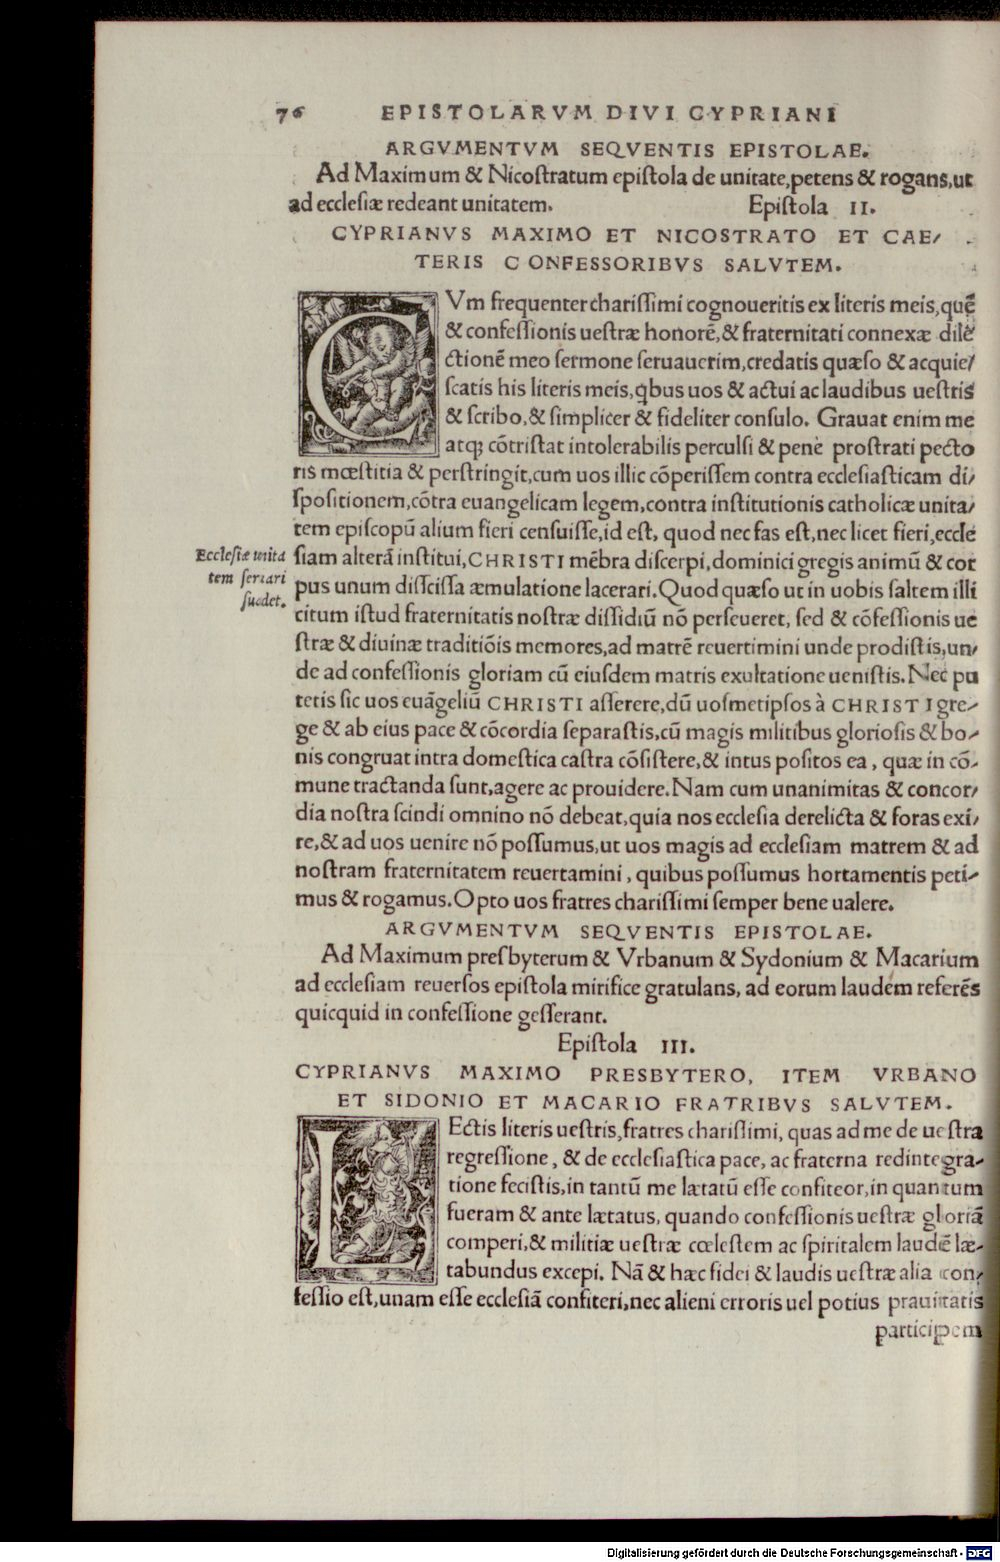 76 EPISTOLARVM DIVI CYPRIANI
ARGVMENTVM SEQVENTIS EPISTOLAE.
Ad Maximum & Nicoſtratum epiſtola de unitate,petens & rogans,ut
ad ecclesiæ redeant unitatem. Epiſtola II.
CYPRIANVS MAXIMO ET NICOSTRATO ET CAE/
TERIS CONFESSORIBVS SALVTEM.
CVm frequenter chariſſimi cognoueritis ex literis meis,quẽ
& confeſſionis ueſtræ honorẽ,& fraternitati connexæ dilẽ
ctionẽ meo ſermone ſeruauerim,credatis quæſo & acquie/
ſcatis his literis meis,qbus uos & actui ac laudibus ueſtris
& ſcribo,& ſimplicer & fideliter conſulo. Grauat enim me
atq; cõtriſtat intolerabilis perculſi & penè proſtrati pecto
ris mœſtitia & perſtringit,cum uos illic cõperiſſem contra eccleſiaſticam di/
ſpoſitionem,cõtra euangelicam legem,contra inſtitutionis catholicæ unita/
tem epiſcopũ alium fieri cenſuiſſe,id eſt, quod nec fas eſt,nec licet fieri,eccle
ſiam alterã inſtitui,CHRISTI mẽbra diſcerpi,dominici gregis animũ & cor
pus unum diſſciſſa æmulatione lacerari.Quod quæſo ut in uobis ſaltem illi
citum iſtud fraternitatis noſtræ diſſidiũ nõ perſeueret, ſed & cõfeſſionis ue
ſtræ & diuinæ traditiõis memores,ad matrẽ reuertimini unde prodiſtis,un/
de ad confeſſionis gloriam cũ eiuſdem matris exultatione ueniſtis.Nec pu
tetis ſic uos euãgeliũ CHRISTI aſſerere,dũ uoſmetipſos à CHRISTI gre/
ge & ab eius pace & cõcordia ſeparaſtis,cũ magis militibus glorioſis & bo/
nis congruat intra domeſtica caſtra cõſiſtere,& intus poſitos ea, quæ in cõ/
mune tractanda ſunt,agere ac prouidere.Nam cum unanimitas & concor/
dia noſtra ſcindi omnino nõ debeat,quia nos eccleſia derelicta & foras exi/
re,& ad uos uenire nõ poſſumus,ut uos magis ad eccleſiam matrem & ad
noſtram fraternitatem reuertamini, quibus poſſumus hortamentis peti/
mus & rogamus.Opto uos fratres chariſſimi ſemper bene ualere.
Eccleſiæ unita
tem ſeruari
ſuadet.
ARGVMENTVM SEQVENTIS EPISTOLAE.
Ad Maximum preſbyterum & Vrbanum & Sydonium & Macarium
ad eccleſiam reuerſos epiſtola mirifice gratulans, ad eorum laudem referẽs
quicquid in confeſſione geſſerant.
Epiſtola III.
CYPRIANVS MAXIMO PRESBYTERO, ITEM VRBANO
ET SIDONIO ET MACARIO FRATRIBVS SALVTEM.
LEctis literis ueſtris,fratres chariſſimi, quas ad me de ueſtra
regreſſione, & de eccleſiaſtica pace, ac fraterna redintegra/
tione feciſtis,in tantũ me lætatũ eſſe confiteor,in quantum
fueram & ante lætatus, quando confeſſionis ueſtræ gloriã
comperi,& militiæ ueſtræ cœleſtem ac ſpiritalem laudẽ læ/
tabundus excepi. Nã & hæc fidei & laudis ueſtræ alia con/
feſſio eſt,unam eſſe eccleſiã confiteri,nec alieni erroris uel potius prauitatis
participem
Digitalisierung gefördert durch die Deutsche Forschungsgemeinschaft - DFG